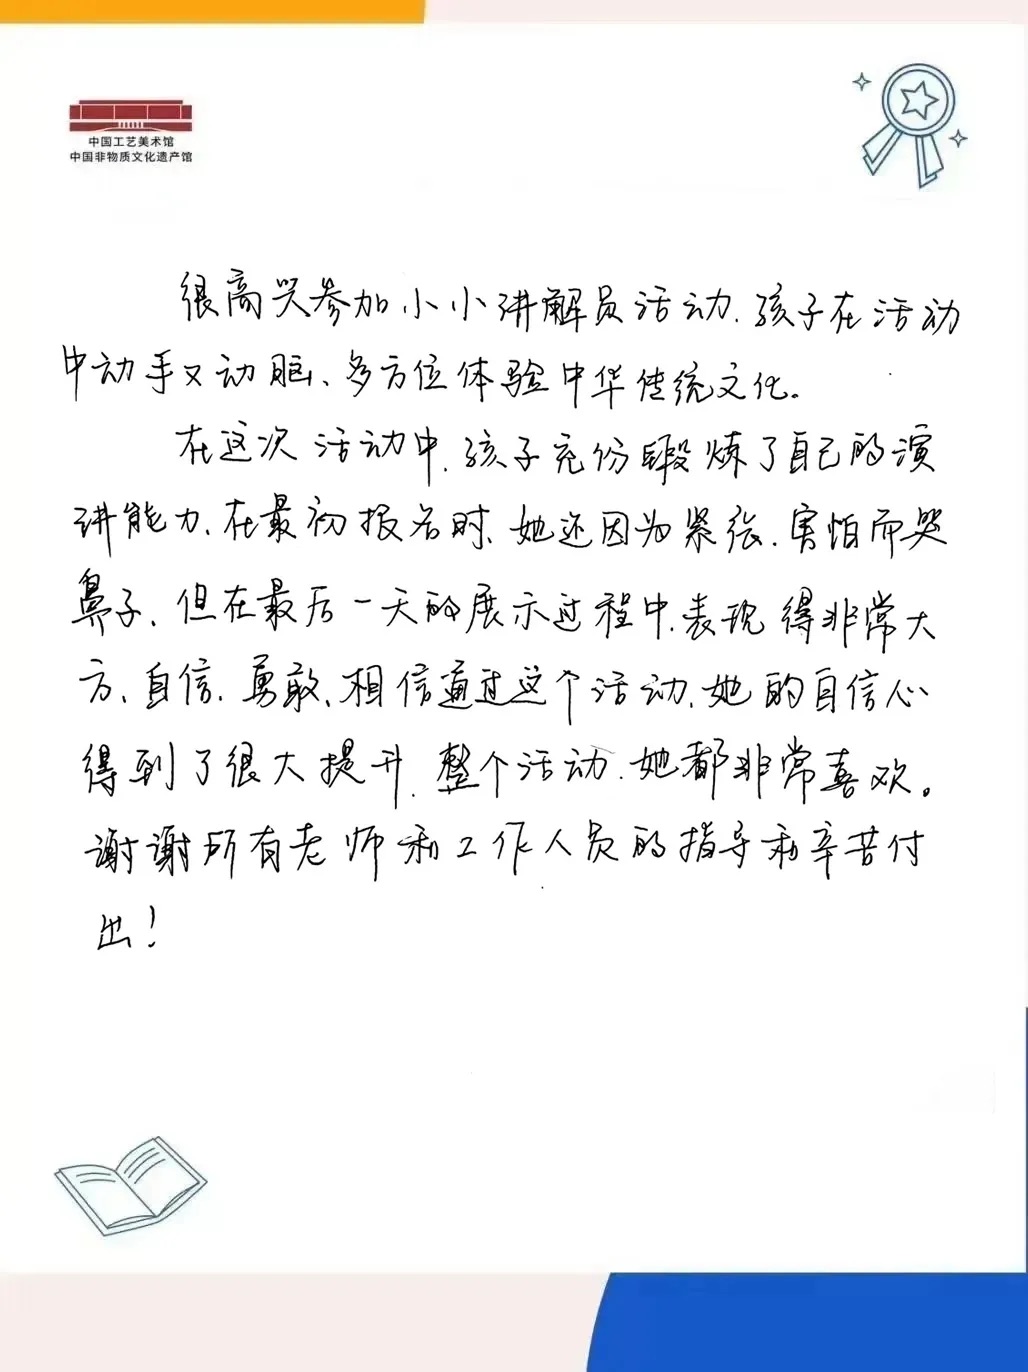 中国工艺美术馆
中国非物质文化遗产馆
很高兴参加小小讲解员活动，孩子在活动
中动手又动脑、多方位体验中华传统文化。
在这次活动中，孩子充份锻炼了自己的演
讲能力、在最初报名时、她还因为紧张、害怕而哭
鼻子、但在最后一天的展示过程中，表现得非常大
方、自信、勇敢、相信通过这个活动，她的自信心
得到了很大提升，整个活动，她都非常喜欢。
谢谢所有老师和工作人员的指导和辛苦付
出！